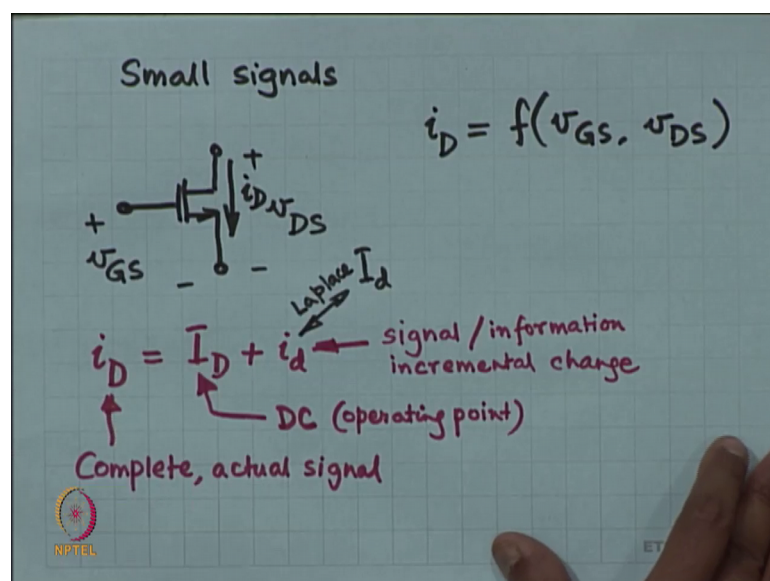 Small signals
i_D = f(v_GS, v_DS)
+
i_D
v_DS
+
v_GS
-
-
Laplace
I_d
i_D = I_D + i_d
signal / information
incremental change
DC (operating point)
Complete, actual signal
NPTEL
ET